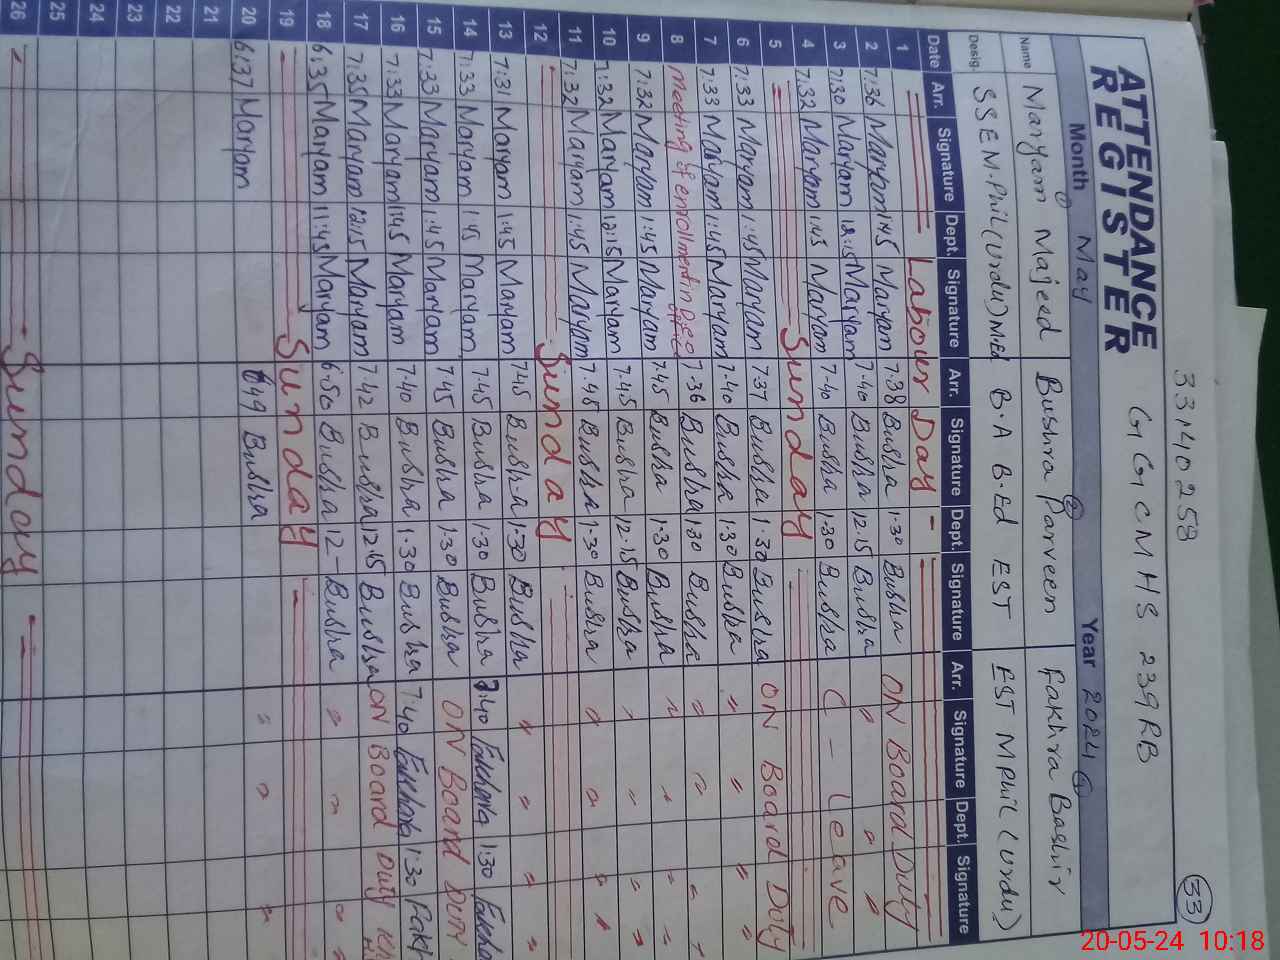 33140258
33
ATTENDANCE REGISTER GGCMHS 239RB
Month May Year 2024
Name Maryam Majeed Bushra Parveen Fakhra Bashir
Desig. SSE M.Phil (Urdu) MEd B.A B.Ed EST EST MPhil (Urdu)
Date Arr. Signature Dept. Signature Arr. Signature Dept. Signature Arr. Signature Dept. Signature
1 Labour Day -
2 7:36 Maryam 1:45 Maryam 7:38 Bushra 1:30 Bushra ON Board Duty
3 7:30 Maryam 12:15 Maryam 7:40 Bushra 12:15 Bushra " " "
4 7:32 Maryam 1:45 Maryam 7:40 Bushra 1:30 Bushra C - Leave
5 Sunday
6 7:33 Maryam 1:45 Maryam 7:37 Bushra 1:30 Bushra ON Board Duty
7 7:33 Maryam 1:45 Maryam 7:40 Bushra 1:30 Bushra " " " "
8 Meeting of enrollment in Deo office 7:36 Bushra 1:30 Bushra " " " "
9 7:32 Maryam 1:45 Maryam 7:45 Bushra 1:30 Bushra " " " "
10 7:32 Maryam 12:15 Maryam 7:45 Bushra 12:15 Bushra " " " "
11 7:32 Maryam 1:45 Maryam 7:48 Bushra 1:30 Bushra " " " "
12 Sunday
13 7:31 Maryam 1:45 Maryam 7:45 Bushra 1:30 Bushra " " " "
14 7:33 Maryam 1:45 Maryam 7:45 Bushra 1:30 Bushra 7:40 Fakhra 1:30 Fakhra
15 7:33 Maryam 1:45 Maryam 7:45 Bushra 1:30 Bushra ON Board Duty
16 7:33 Maryam 1:45 Maryam 7:40 Bushra 1:30 Bushra 7:40 Fakhra 1:30 Fakh
17 7:35 Maryam 12:15 Maryam 7:42 Bushra 12:15 Bushra ON Board Duty
18 6:35 Maryam 11:45 Maryam 6:50 Bushra 12- Bushra " " " "
19 Sunday
20 6:37 Maryam 6:49 Bushra " " "
21
22
23
24
25
26 Sunday
20-05-24 10:18